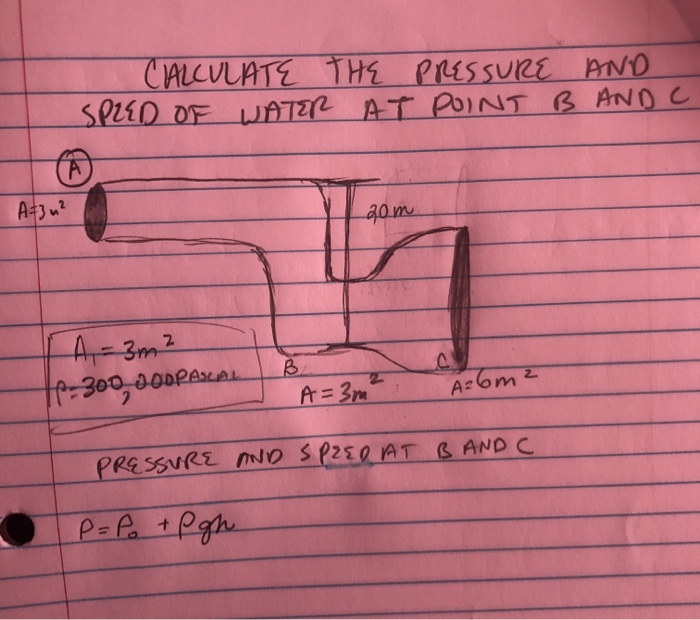 CALCULATE THE PRESSURE AND
SPEED OF WATER AT POINT B AND C
A
A=3m²
20m
A₁ = 3m²
P=300,000PASCAL
B
A = 3m²
C
A=6m²
PRESSURE AND SPEED AT B AND C
P=P₀ + ρgh